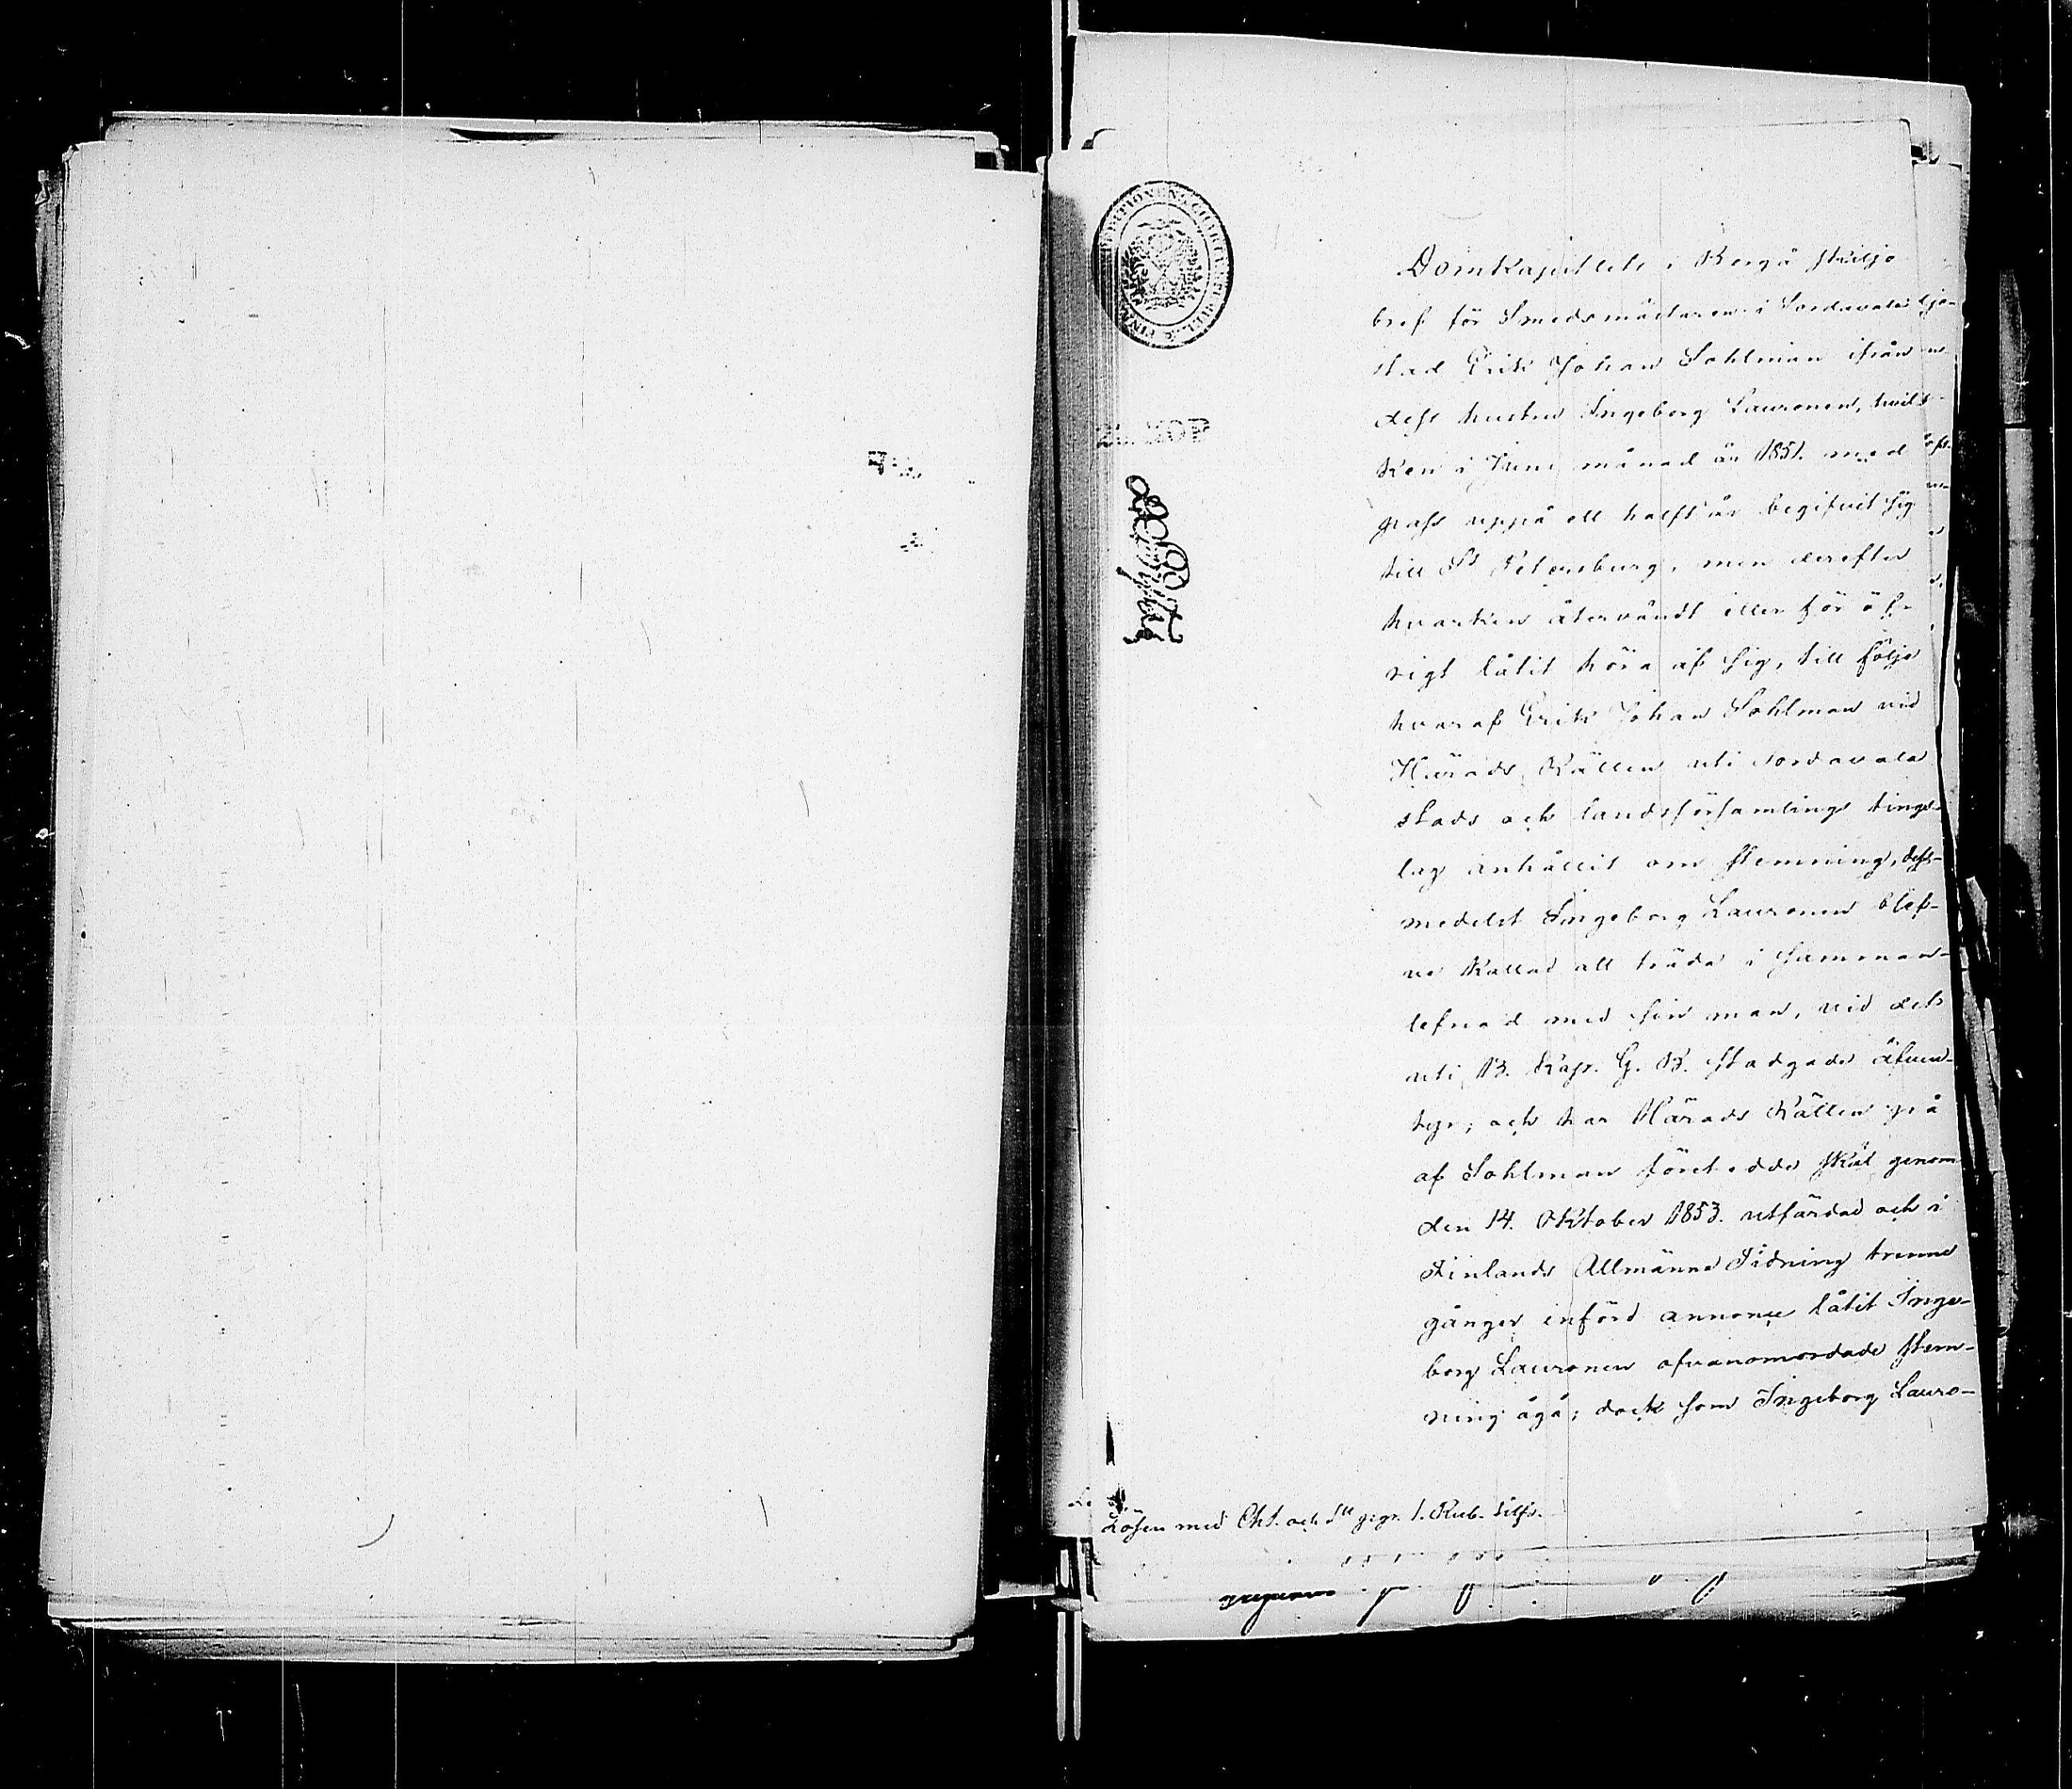 Domkapitlets i Borgå skiljo
bref för Smedsmästaren i Sordavala
stad Erik Johan Sohlman ifrån
dess hustru Ingeborg Lauronen, hvil-
ken i Juni månad år 1851. med
pass uppå ett halft år begifvit sig
till S:t Petersburg, men derefter
hvarken återvändt eller för öf-
rigt låtit höra af sig, till följe
hvaraf Erik Johan Sohlman vid
Härads Rätten uti Sordavala
stads och landsförsamlings tings-
lag anhållit om stemning, dess-
medelst Ingeborg Lauronen blef-
ve kallad att träda i samman-
lefnad med sin man, vid det
uti 13. Kap. G. B. stadgade äfven-
tyr; och har Härads Rätten på
af Sohlman företedde skäl genom
den 14. Oktober 1853. utfärdad och i
Finlands Allmänna Tidning trenne
gånger införd annonce låtit Inge-
borg Lauronen ofvanomordade stem-
ning ågå; dock som Ingeborg Lauro-
Lösen med Cht. och ppr. 1. Rub. silfr.